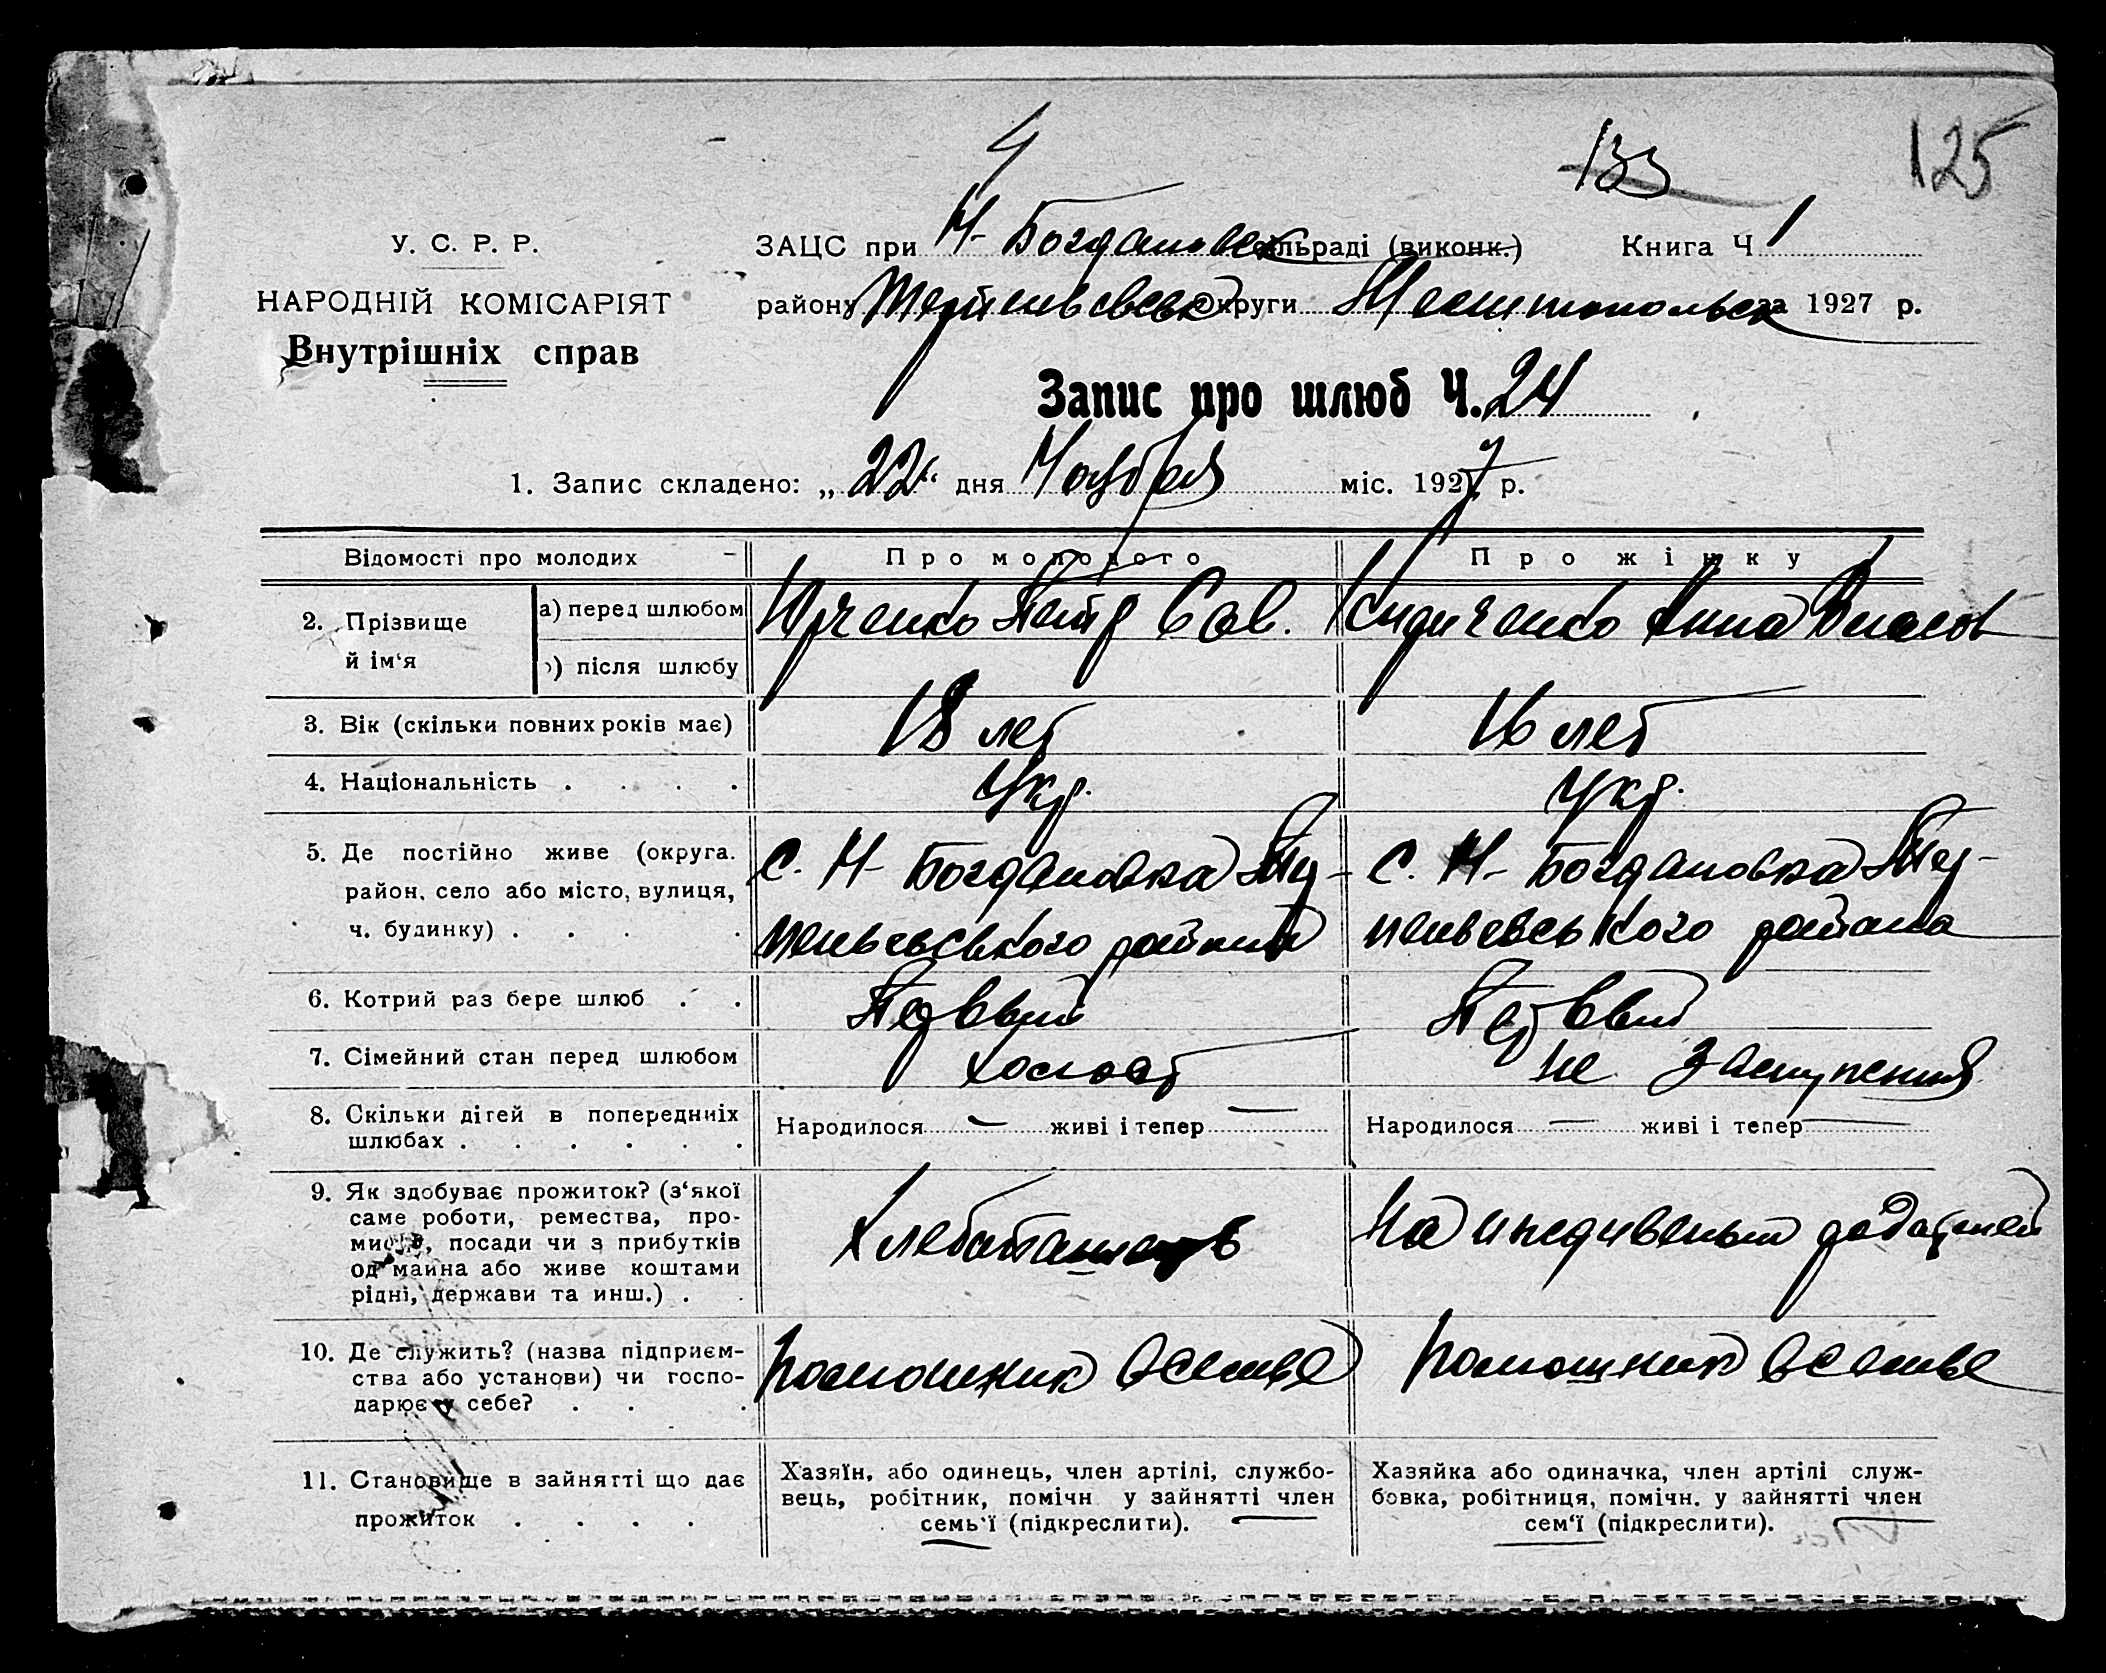 133 125
У. С. Р. Р.
НАРОДНІЙ КОМІСАРІЯТ
Внутрішніх справ
ЗАЦС при Н-Богдановск сільраді (виконк.) Книга Ч 1
району округи Мелитопольск за 1927 р.
Запис про шлюб Ч. 24
1. Запис складено: „22“ дня Ноября міс. 1927 р.
Відомості про молодих Про молодого Про жінку
2. Прізвище й ім‘я
а) перед шлюбом Юрченко Петр Сав. Анна Власов
б) після шлюбу
3. Вік (скільки повних років має) 18 лет 16 лет
4. Національність . . . . Укр. Укр.
5. Де постійно живе (округа. с. Н-Богдановка Тер- с. Н-Богдановка Тер-
район, село або місто, вулиця,
ч. будинку) . . . . пеньевського района пеньевського района
6. Котрий раз бере шлюб . . Первый Первый
7. Сімейний стан перед шлюбом холост не
8. Скільки дітей в попередниіх
шлюбах . . . . . . Народилося — живі і тепер — Народилося — живі і тепер —
9. Як здобуває прожиток? (з‘якої
саме роботи, ремества, про-
мисла, посади чи з прибутків
од майна або живе коштами
рідні, держави та инш.) . Хлебопашець На иждивеньи
10. Де служить? (назва підприєм-
ства або установи) чи госпо-
дарює у себе? . . . помошник в семье помощник в семье
11. Становище в зайнятті що дає
прожиток . . . .
Хазяїн, або одинець, член артілі, службо-
вець, робітник, помічн у зайнятті член
семь‘ї (підкреслити).
Хазяйка або одиначка, член артілі служ-
бовка, робітниця, помічн. у зайнятті член
сем‘ї (підкреслити).